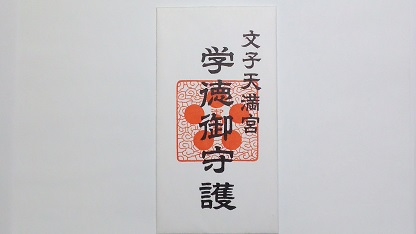 文子天満宮
学徳御守護